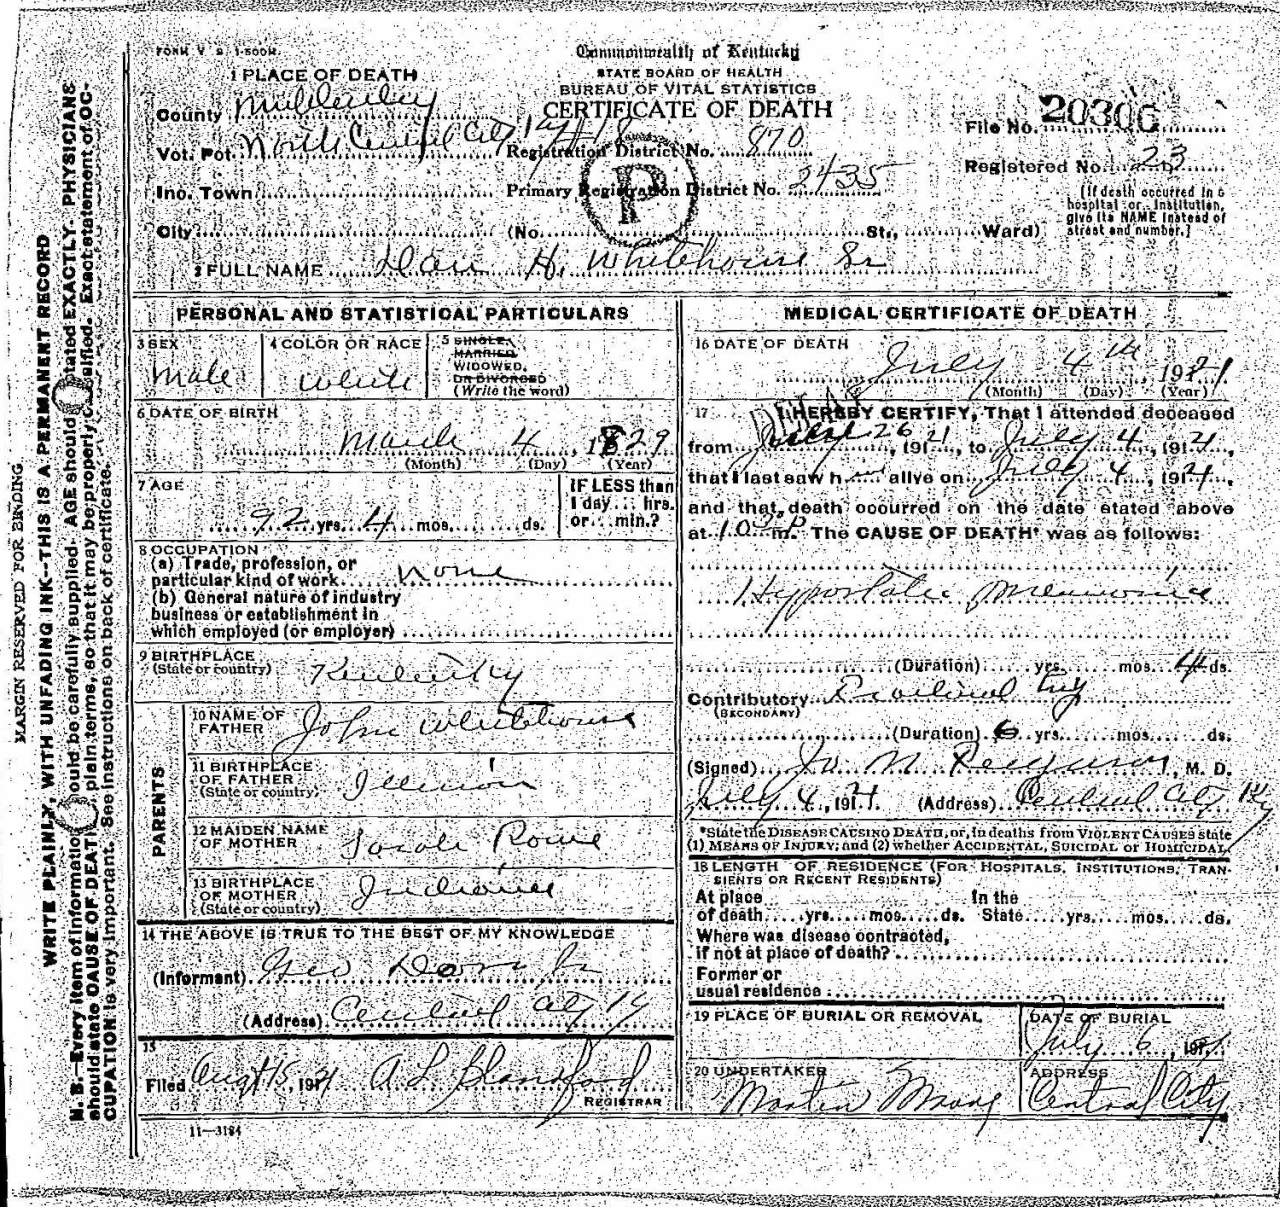 FORM V. S. 1-500M.
Commonwealth of Kentucky
STATE BOARD OF HEALTH
BUREAU OF VITAL STATISTICS
CERTIFICATE OF DEATH
1 PLACE OF DEATH
County Muhlenberg
Vot. Pct. North Central City 1a #18 Registration District No. 870
File No. 20306
Inc. Town Primary Registration District No. 2435
Registered No. 23
City (No. St., Ward)
[If death occurred in a
hospital or institution,
give its NAME instead of
street and number.]
P
2 FULL NAME Dan H. Whitehouse Sr
PERSONAL AND STATISTICAL PARTICULARS
3 SEX
male
4 COLOR OR RACE
White
5 SINGLE,
MARRIED,
WIDOWED,
OR DIVORCED
(Write the word)
6 DATE OF BIRTH
March 4, 1829
(Month) (Day) (Year)
7 AGE
92 yrs. 4 mos. ds.
IF LESS than
1 day... hrs.
or... min.?
8 OCCUPATION
(a) Trade, profession, or
particular kind of work none
(b) General nature of industry
business or establishment in
which employed (or employer)
9 BIRTHPLACE
(State or country) Kentucky
PARENTS
10 NAME OF
FATHER John Whitehouse
11 BIRTHPLACE
OF FATHER
(State or country) Illinois
12 MAIDEN NAME
OF MOTHER Sarah Rowe
13 BIRTHPLACE
OF MOTHER
(State or country) Indiana
14 THE ABOVE IS TRUE TO THE BEST OF MY KNOWLEDGE
(Informant) Geo
(Address) Central City Ky
15
Filed Aug 15, 1921 A L Blandford
REGISTRAR
11—3184
MEDICAL CERTIFICATE OF DEATH
16 DATE OF DEATH
July 4th, 1921
(Month) (Day) (Year)
17 I HEREBY CERTIFY, That I attended deceased
from 26 1921, to July 4, 1921,
that I last saw h im alive on July 4, 1921,
and that death occurred on the date stated above
at 10 30 P m. The CAUSE OF DEATH* was as follows:
Hypostatic Pneumonia
(Duration) yrs. mos. 4 ds.
Contributory
(SECONDARY)
(Duration) 6 yrs. mos. ds.
(Signed) Jo. N Ferguson, M. D.
July 4, 1921 (Address) Central City Ky
*State the DISEASE CAUSING DEATH, or, in deaths from VIOLENT CAUSES state
(1) MEANS OF INJURY; and (2) whether ACCIDENTAL, SUICIDAL or HOMICIDAL.
18 LENGTH OF RESIDENCE (FOR HOSPITALS, INSTITUTIONS, TRAN-
SIENTS OR RECENT RESIDENTS)
At place In the
of death yrs. mos. ds. State yrs. mos. ds.
Where was disease contracted,
if not at place of death?
Former or
usual residence
19 PLACE OF BURIAL OR REMOVAL
DATE OF BURIAL
July 6, 1921
20 UNDERTAKER
Martin Moore
ADDRESS
Central City
MARGIN RESERVED FOR BINDING
WRITE PLAINLY, WITH UNFADING INK--THIS IS A PERMANENT RECORD
N. B.—Every item of information should be carefully supplied. AGE should be stated EXACTLY. PHYSICIANS
should state CAUSE OF DEATH in plain terms, so that it may be properly classified. Exact statement of OC-
CUPATION is very important. See instructions on back of certificate.